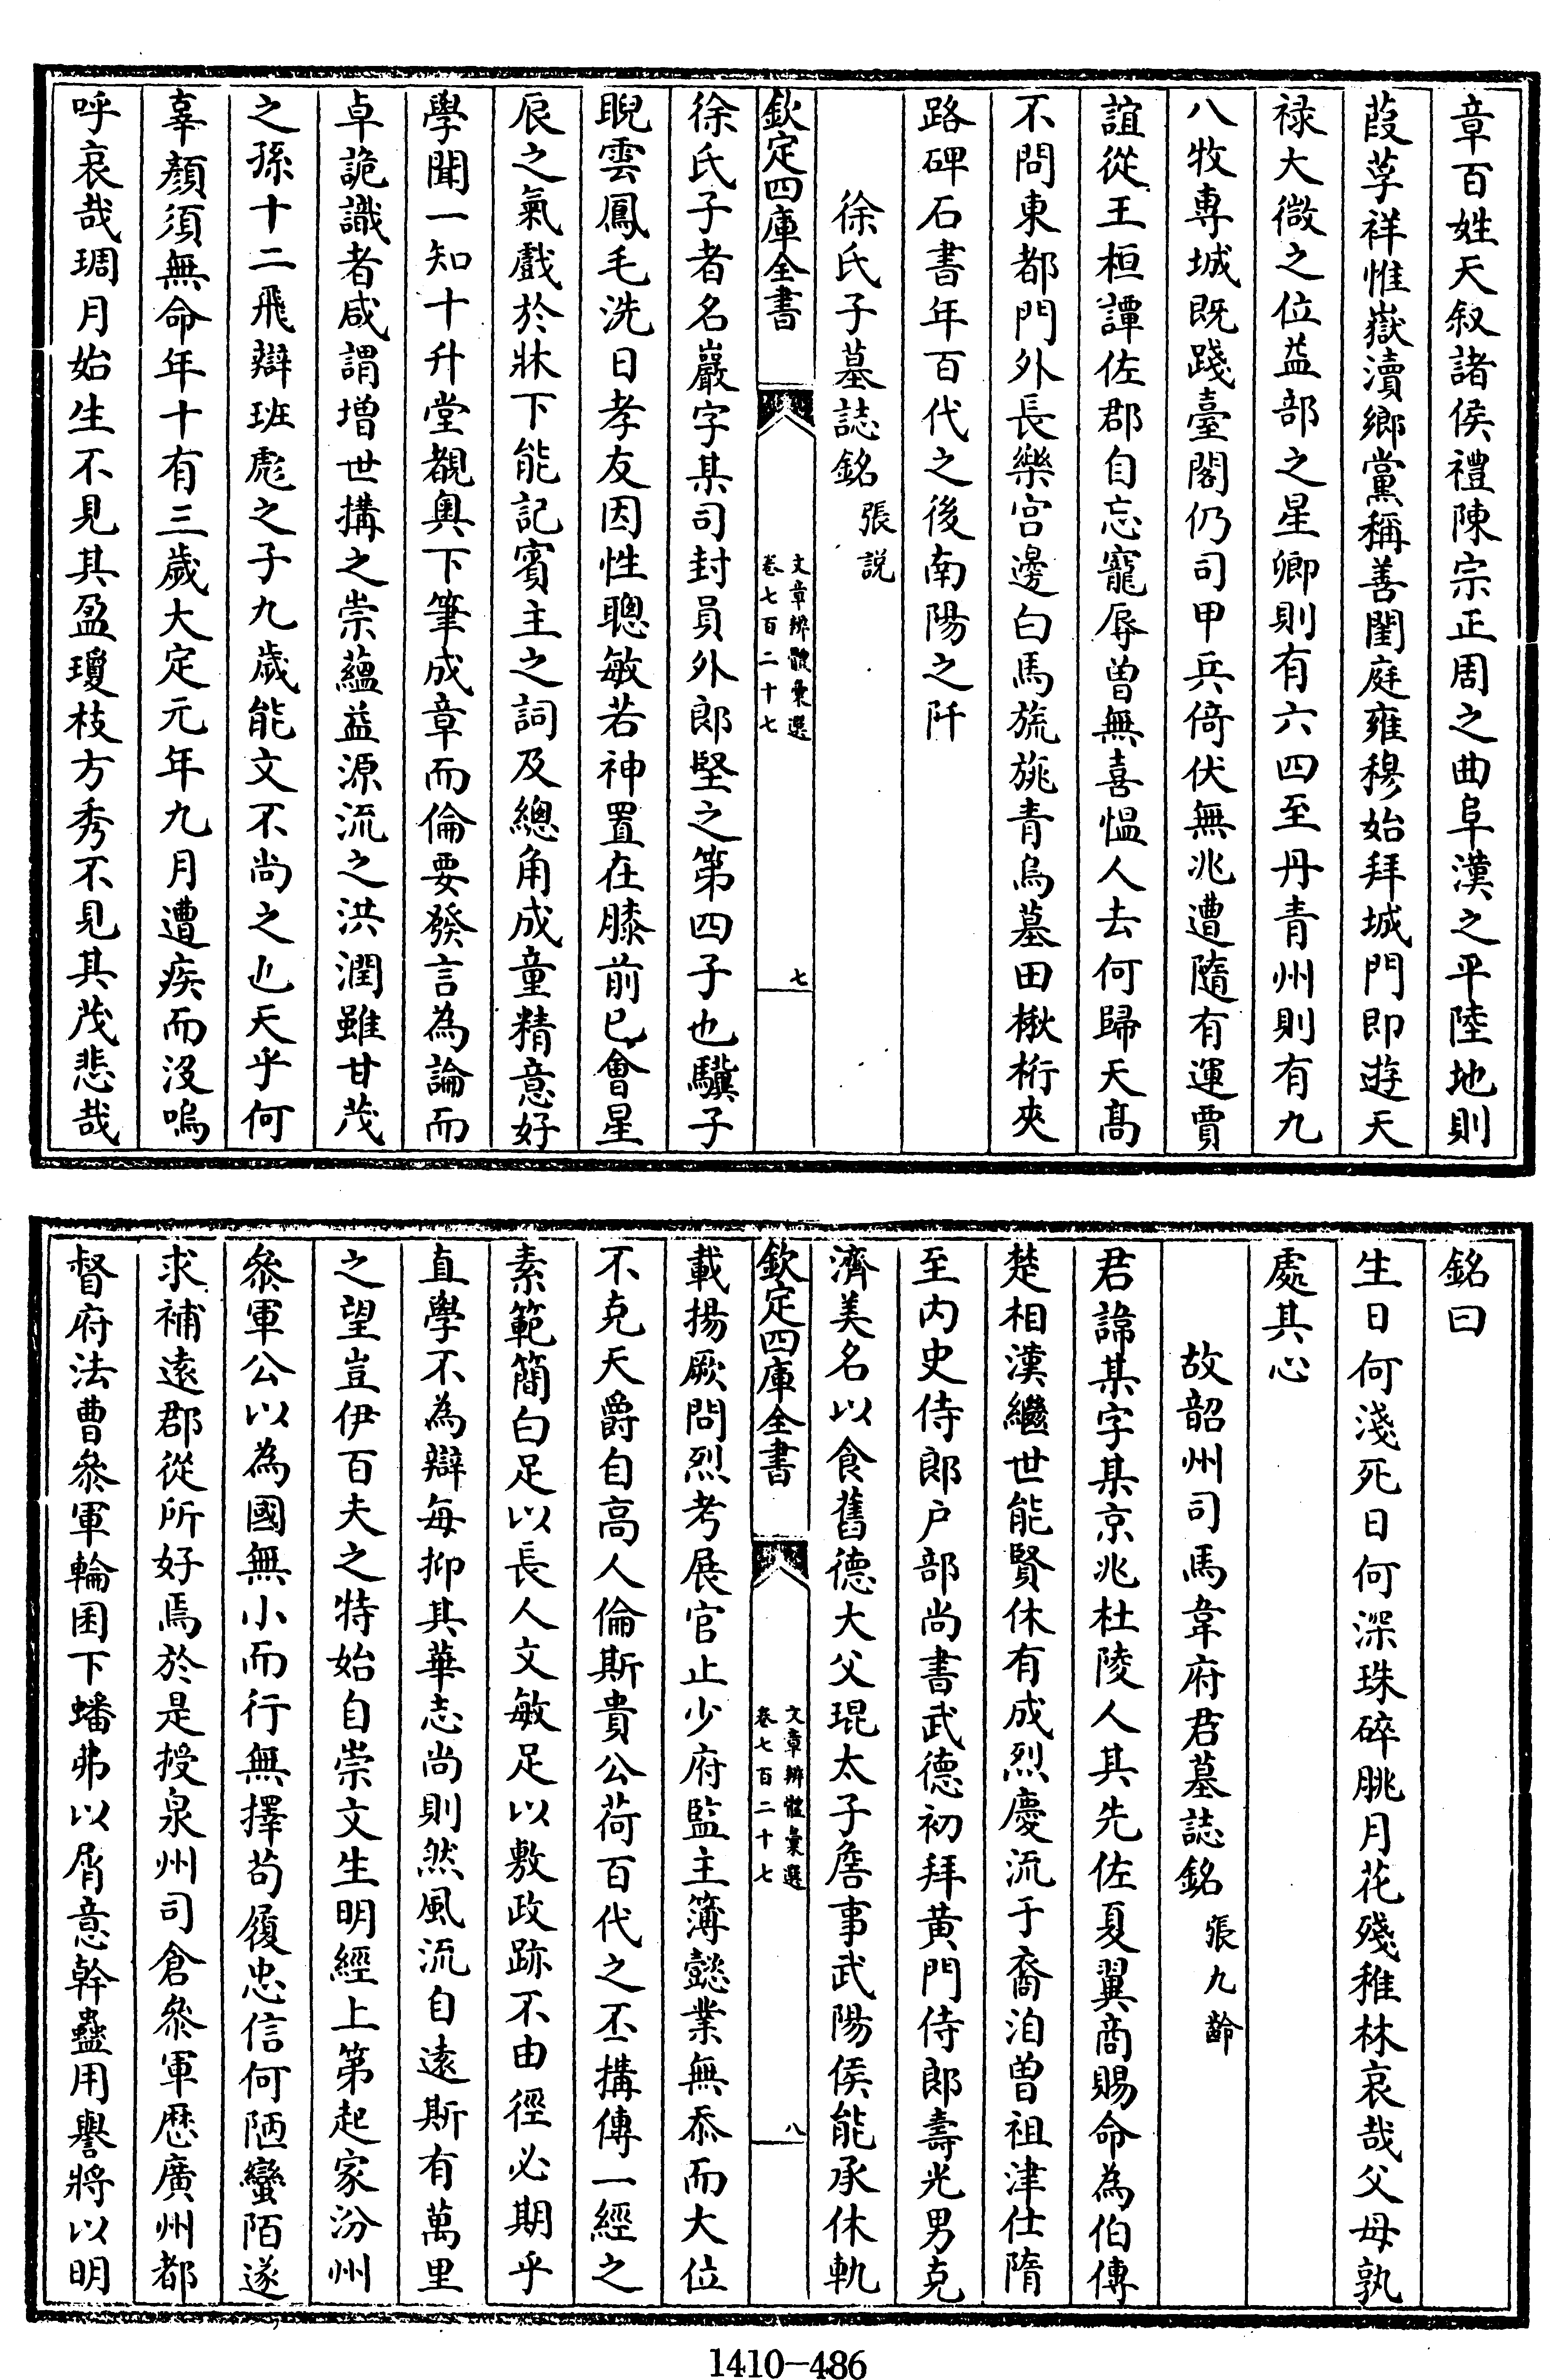 章百姓天叙諸侯禮陳宗正周之曲阜漢之平陸地則
葭莩祥惟嶽瀆鄉黨稱善閨庭雍穆始拜城門即遊天
禄大微之位益部之星卿則有六四至丹青州則有九
八牧専城既踐臺閣仍司甲兵倚伏無兆遭隨有運賈
誼從王桓譚佐郡自忘寵辱曽無喜愠人去何歸天髙
不問東都門外長樂宫邊白馬旒旐青烏墓田楸桁夾
路碑石書年百代之後南陽之阡
徐氏子墓誌銘 張説
欽定四庫全書
文章辨體彙選
卷七百二十七
七
徐氏子者名巖字某司封員外郎堅之第四子也驥子
睨雲鳳毛洗日孝友因性聰敏若神置在膝前已會星
辰之氣戲於牀下能記賓主之詞及總角成童精意好
學聞一知十升堂覩奥下筆成章而倫要發言為論而
卓詭識者咸謂増世搆之崇蘊益源流之洪潤雖甘茂
之孫十二飛辯班彪之子九歳能文不尚之也天乎何
辜顏須無命年十有三歳大定元年九月遭疾而没嗚
呼哀哉琱月始生不見其盈瓊枝方秀不見其茂悲哉
銘曰
生日何淺死日何深珠碎朓月花殘稚林哀哉父母孰
處其心
故韶州司馬韋府君墓誌銘 張九齡
君諱某字某京兆杜陵人其先佐夏翼商賜命為伯傳
楚相漢繼世能賢休有成烈慶流于裔洎曽祖津仕隋
至内史侍郎户部尚書武德初拜黄門侍郎壽光男克
濟美名以食舊德大父琨太子詹事武陽侯能承休軌
欽定四庫全書
文章辨體彙選
卷七百二十七
八
載揚厥問烈考展官止少府監主簿懿業無忝而大位
不克天爵自高人倫斯貴公荷百代之丕搆傳一經之
素範簡白足以長人文敏足以敷政跡不由徑必期乎
直學不為辯每抑其華志尚則然風流自遠斯有萬里
之望豈伊百夫之特始自崇文生明經上第起家汾州
參軍公以為國無小而行無擇茍履忠信何陋蠻陌遂
求補遠郡從所好焉於是授泉州司倉參軍歴廣州都
督府法曹參軍輪囷下蟠弗以屑意幹蠱用譽將以明
1410—486